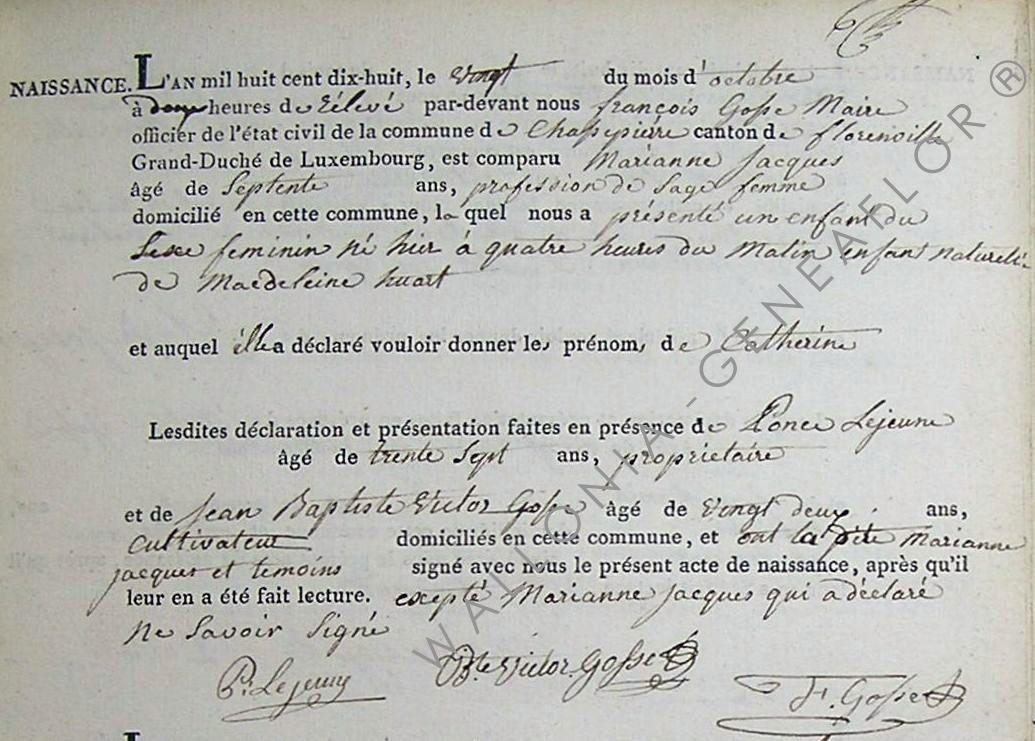 NAISSANCE. L'AN mil huit cent dix-huit, le vingt du mois d'octobre
à deux heures de rélevé par-devant nous françois Gosse Maire
officier de l'état civil de la commune de Chassepierre canton de florenville
Grand-Duché de Luxembourg, est comparu Marianne Jacques
âgé de Septente ans, profession de Sage femme
domicilié en cette commune, la quel nous a présenté un enfant du
Sexe feminin né hier à quatre heures du Matin enfant naturelle
de Maedeleine huart
et auquel elle a déclaré vouloir donner les prénoms de Catherine
Lesdites déclaration et présentation faites en présence de Ponce Lejeune
âgé de trente Sept ans, proprietaire
et de Jean Baptiste Victor Gosse âgé de vingt deux ans,
Cultivateur domiciliés en cette commune, et ont la dite Marianne
jacques et temoins signé avec nous le présent acte de naissance, après qu'il
leur en a été fait lecture. excepté Marianne Jacques qui a déclaré
Ne Savoir Signé
P. Lejeune Bte Victor Gosse F. Gosse
WALLONIA-GENEAFLOR ®